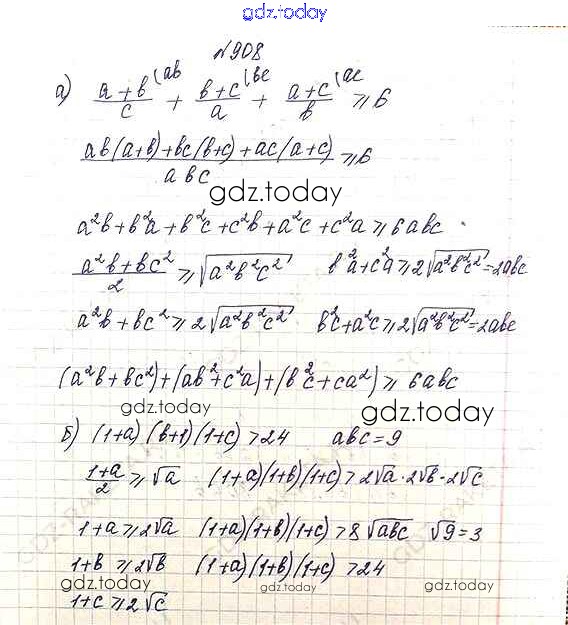 gdz.today
№908
а) (a+b)/c (ab + (b+c)/a (bc + (a+c)/b (ac ≥ 6
(ab(a+b)+bc(b+c)+ac(a+c))/abc ≥ 6
gdz.today
a²b+b²a+b²c+c²b+a²c+c²a ≥ 6abc
(a²b+bc²)/2 ≥ √(a²b²c²) b²a+c²a ≥ 2√(a²b²c²) = 2abc
a²b+bc² ≥ 2√(a²b²c²) b²c+a²c ≥ 2√(a²b²c²) = 2abc
(a²b+bc²)+(ab²+c²a)+(b²c+ca²) ≥ 6abc
gdz.today gdz.today
б) (1+a)(b+1)(1+c) > 24 abc = 9
(1+a)/2 ≥ √a (1+a)(1+b)(1+c) > 2√a·2√b·2√c
1+a ≥ 2√a (1+a)(1+b)(1+c) > 8√abc √9 = 3
1+b ≥ 2√b (1+a)(1+b)(1+c) > 24
gdz.today gdz.today gdz.today
1+c ≥ 2√c